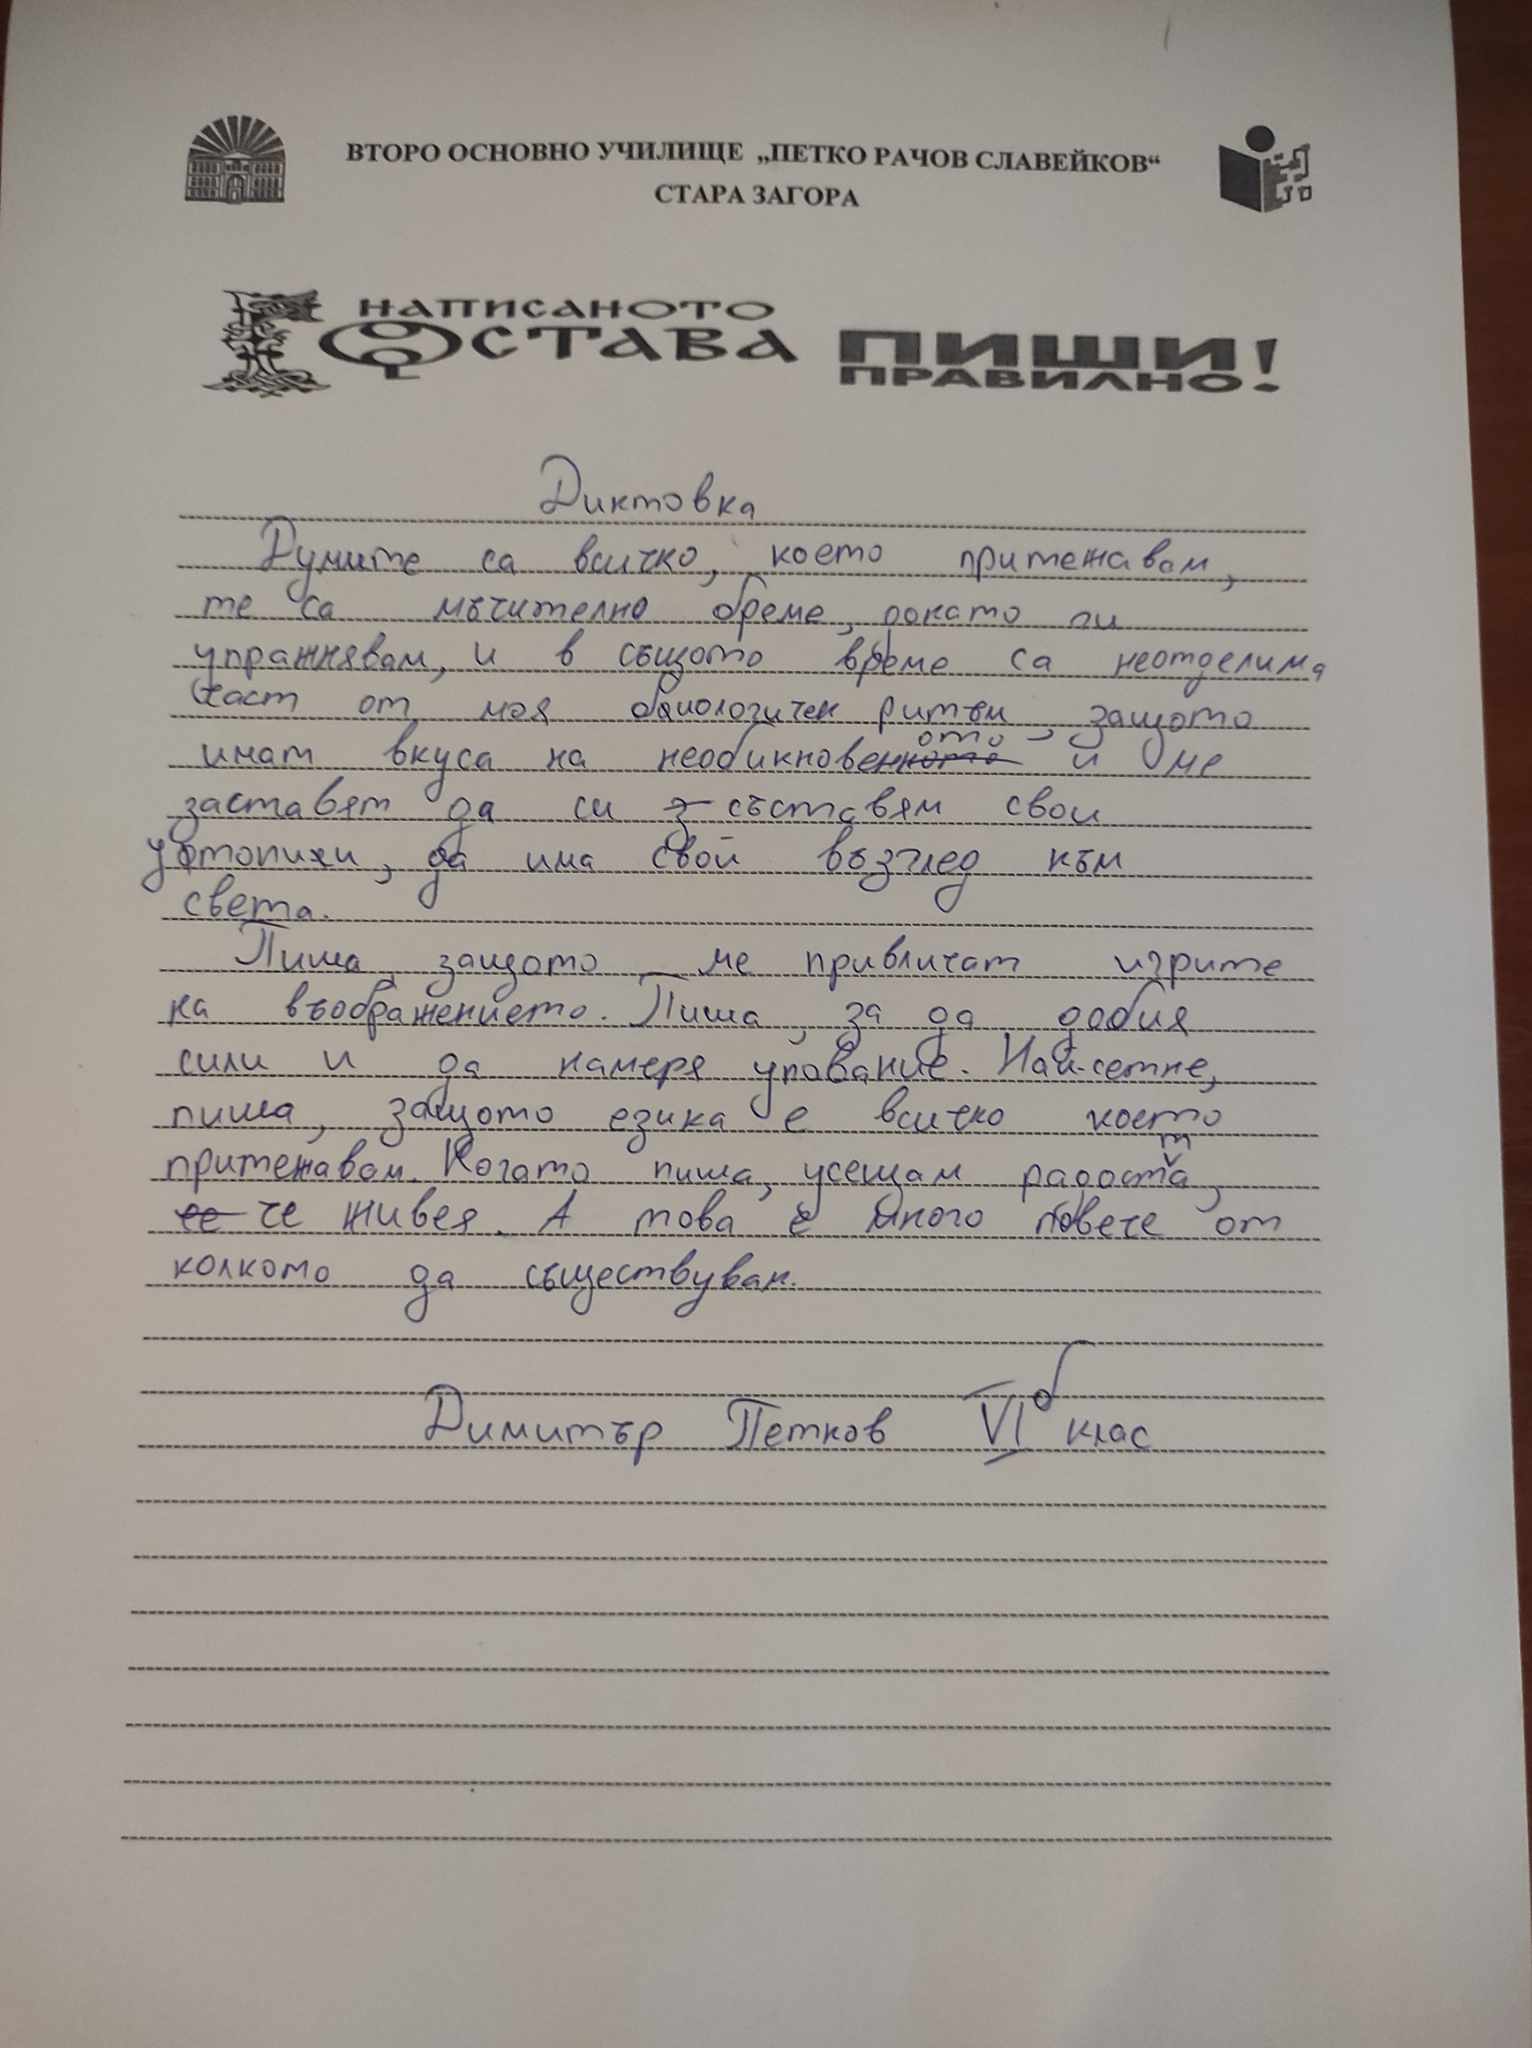 ВТОРО ОСНОВНО УЧИЛИЩЕ „ПЕТКО РАЧОВ СЛАВЕЙКОВ“
СТАРА ЗАГОРА
НАПИСАНОТО
ОСТАВА
ПИШИ
ПРАВИЛНО!
Диктовка
Думите са всичко, което притежавам,
те са мъчително бреме, докато ги
упражнявам, и в същото време са неотделима
част от моя биологичен ритъм, защото
имат вкуса на необикновеното и ме
заставят да си съставям свои
утопии, да има свой възглед към
света.
Пиша, защото ме привличат игрите
на въображението. Пиша, за да добия
сили и да намеря упование. Най-сетне,
пиша, защото езика е всичко което
притежавам. Когато пиша, усещам радостта,
че живея. А това е много повече от
колкото да съществувам.
Димитър Петков VI б клас